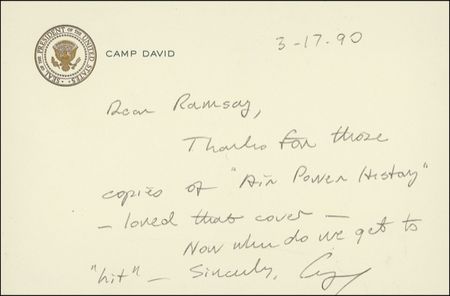 SEAL OF THE PRESIDENT OF THE UNITED STATES
CAMP DAVID
3-17-90
Dear Ramsay,
Thanks for those
copies of "Air Power History"
- loved that cover -
Now who do we get to
"hit" - Sincerely,